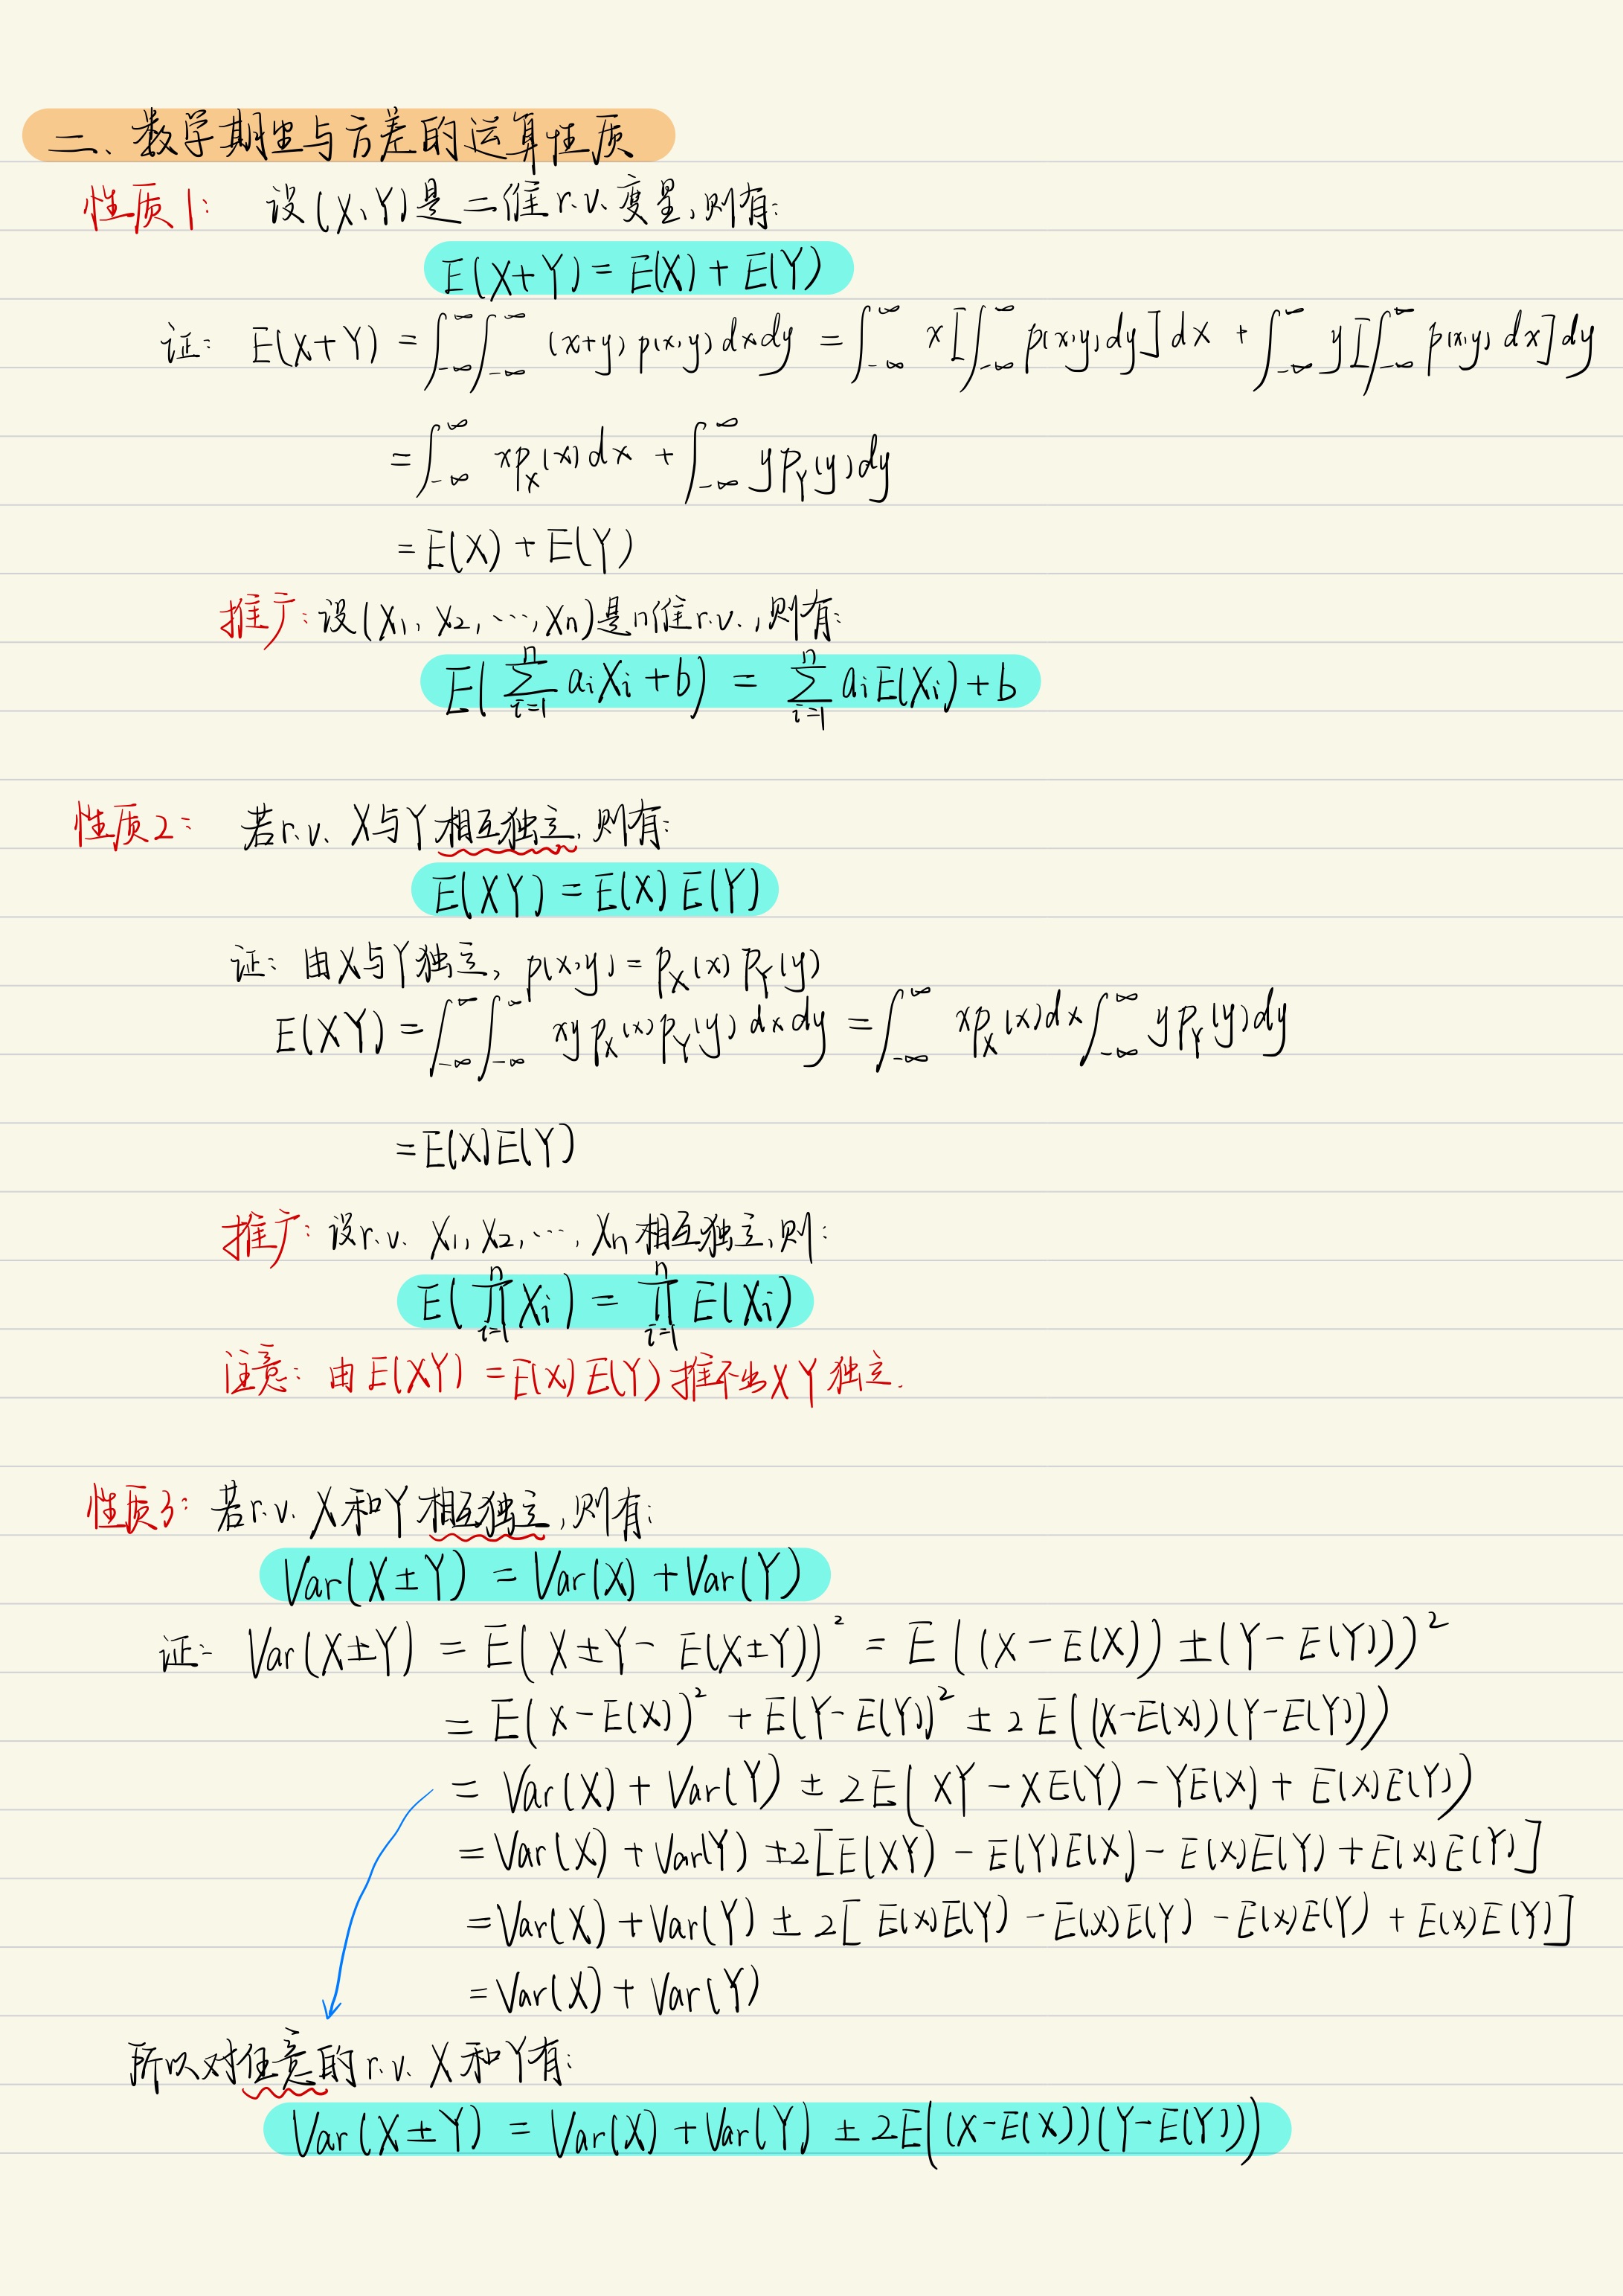 二、数学期望与方差的运算性质
性质1: 设(X,Y)是二维r.v.变量,则有:
E(X+Y) = E(X) + E(Y)
证: E(X+Y) = ∫_{-∞}^{∞}∫_{-∞}^{∞} (x+y) p(x,y) dxdy = ∫_{-∞}^{∞} x[∫_{-∞}^{∞} p(x,y)dy]dx + ∫_{-∞}^{∞} y[∫_{-∞}^{∞} p(x,y) dx]dy
= ∫_{-∞}^{∞} xp_X(x)dx + ∫_{-∞}^{∞} yp_Y(y)dy
= E(X) + E(Y)
推广: 设(X₁, X₂, ⋯, Xn)是n维r.v.,则有:
E(∑_{i=1}^{n} aᵢXᵢ + b) = ∑_{i=1}^{n} aᵢE(Xᵢ) + b
性质2: 若r.v. X与Y相互独立,则有:
E(XY) = E(X) E(Y)
证: 由X与Y独立, p(x,y) = p_X(x) p_Y(y)
E(XY) = ∫_{-∞}^{∞}∫_{-∞}^{∞} xy p_X(x) p_Y(y) dxdy = ∫_{-∞}^{∞} xp_X(x)dx ∫_{-∞}^{∞} yp_Y(y)dy
= E(X)E(Y)
推广: 设r.v. X₁, X₂, ⋯, Xn 相互独立,则:
E(∏_{i=1}^{n} Xᵢ) = ∏_{i=1}^{n} E(Xᵢ)
注意: 由E(XY) = E(X) E(Y)推不出X Y独立.
性质3: 若r.v. X和Y相互独立,则有:
Var(X±Y) = Var(X) + Var(Y)
证: Var(X±Y) = E(X±Y - E(X±Y))² = E((X-E(X)) ± (Y-E(Y)))²
= E(X-E(X))² + E(Y-E(Y))² ± 2E((X-E(X))(Y-E(Y)))
= Var(X) + Var(Y) ± 2E(XY - XE(Y) - YE(X) + E(X)E(Y))
= Var(X) + Var(Y) ±2[E(XY) - E(Y)E(X) - E(X)E(Y) + E(X)E(Y)]
= Var(X) + Var(Y) ± 2[E(X)E(Y) - E(X)E(Y) - E(X)E(Y) + E(X)E(Y)]
= Var(X) + Var(Y)
所以对任意的r.v. X和Y有:
Var(X±Y) = Var(X) + Var(Y) ± 2E((X-E(X))(Y-E(Y)))